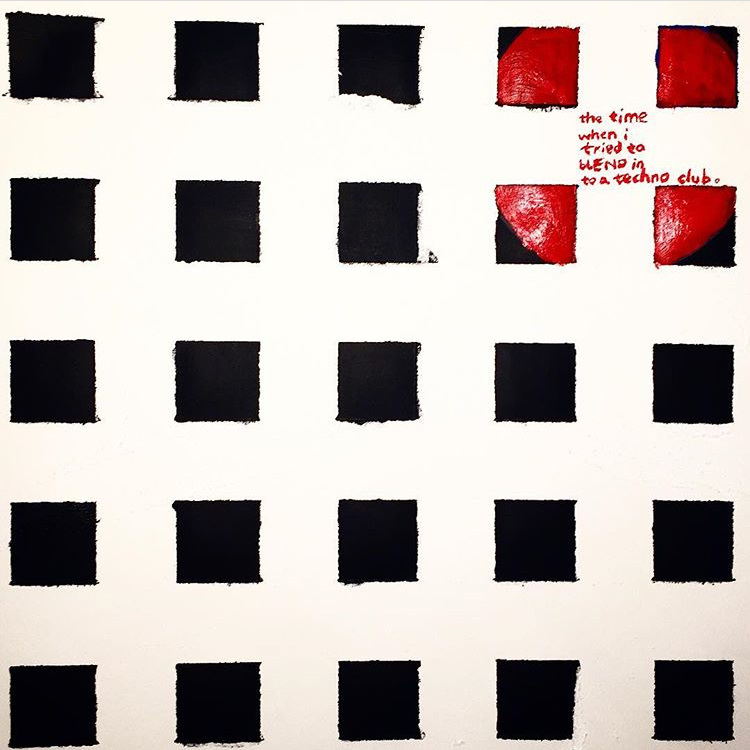 the time
when i
tried to
blEND in
to a techno club.